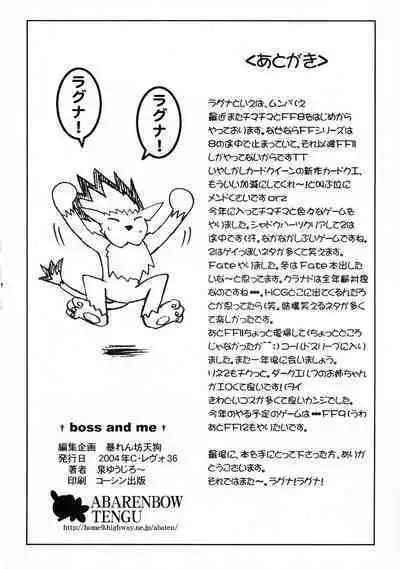 <あとがき>
ラグナ!
ラグナ!
ラグナといえば、ムンバ(え
最近またチマチマとFF8をはじめから
やっております。なぜならFFシリーズは
8の途中で止まっていて、それ以降FF11
しかやってないからですTT
いやしかしカードクイーンの新作カードクエ、
もういい加減にしてくれ〜!と叫ぶ位に
メンドくさいですorz
今年に入ってチマチマと色々なゲームも
やりました。シャドウハーツクリアして2は
途中です(汗。なかなかしぶいゲームですね。
2はゲイっぽいネタが多くて笑えます。
Fateやりました。冬はFate本出した
いな〜と思ってます。クラナドは全年齢対象
なのですね・・・。HCGどこに出てくるんだろ
とか思ってたり(笑。結構笑えるネタが多く
て楽しかったです。
あとFF11ちょっと復帰して(ちょっとところ
じゃなかったが^^;)コールドスリープに入り
ました。また一年後に会いましょう。
リネ2もチクっと。ダークエルフのお姉ちゃん
がエロくて良いです!タイ
きわどいコスが多くて良いカンジでした。
今年のやる予定のゲームは・・・FF9(うわ
あとFF12もやりたいです。
最後に、本を手にとって下さった方、ありが
とうございます。
それではまた〜。ラグナ!ラグナ!
† boss and me †
編集企画 暴れん坊天狗
発行日 2004年C・レヴォ36
著者 泉ゆうじろ〜
印刷 コーシン出版
ABARENBOW
TENGU
http://home9.highway.ne.jp/abaten/